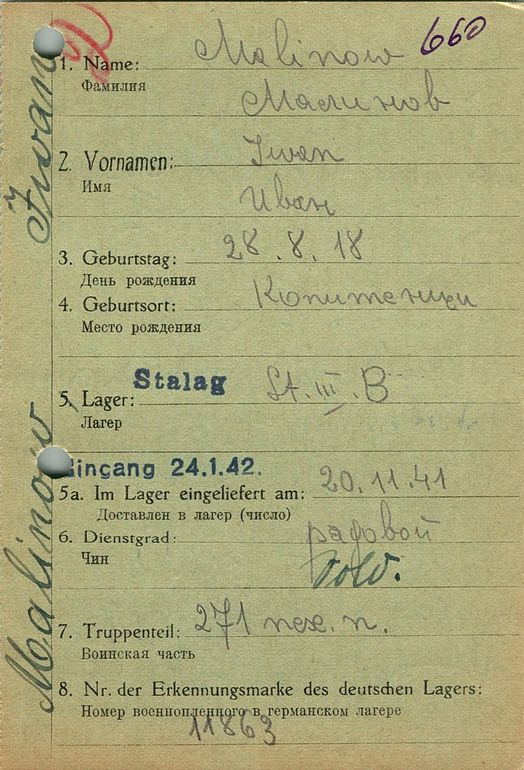 660
1. Name: Malinow
Фамилия
Малинов
2. Vornamen: Iwan
Имя
Иван
3. Geburtstag: 28.8.18
День рождения
4. Geburtsort: Копитеници
Место рождения
Stalag St. III. B
5. Lager:
Лагер
Eingang 24.1.42.
5a. Im Lager eingeliefert am: 20.11.41
Доставлен в лагер (число)
6. Dienstgrad: рядовой
Чин
Sold.
7. Truppenteil: 271 пех. п.
Воинская часть
8. Nr. der Erkennungsmarke des deutschen Lagers:
Номер военнопленного в германском лагере
11863
Malinow Iwan